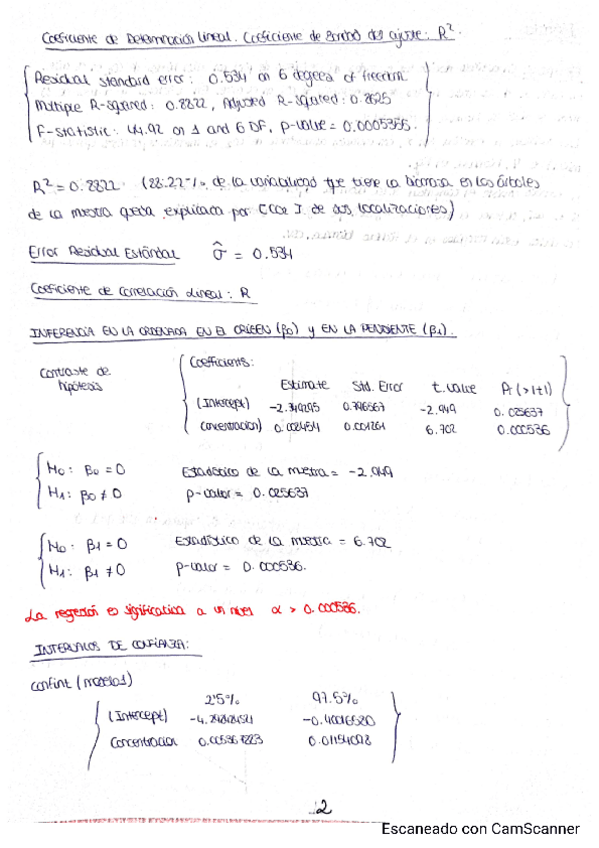 Coeficiente de Determinación lineal. Coeficiente de Bondad del ajuste: R².
Residual standard error: 0.534 on 6 degrees of freedom
Multiple R-squared: 0.8822, Adjusted R-squared: 0.8625
F-statistic: 44.92 on 1 and 6 DF, p-value = 0.0005355.
R² = 0.8822 (88.22% de la variabilidad que tiene la biomasa en los árboles
de la muestra queda explicada por de sus localizaciones)
Error Residual Estándar σ̂ = 0.534
Coeficiente de correlación lineal: R
INFERENCIA EN LA ORDENADA EN EL ORIGEN (β0) y EN LA PENDIENTE (β1).
Contraste de hipótesis
Coefficients:
Estimate Std. Error t.value Pr(>|t|)
(Intercept) 0.796567 -2.949 0.025637
Concentracion) 6.702 0.000536
H0: β0 = 0 Estadístico de la muestra = -2.949
H1: β0 ≠ 0 p-valor = 0.025637
H0: β1 = 0 Estadístico de la muestra = 6.702
H1: β1 ≠ 0 p-valor = 0.000536.
La regresión es significativa a un nivel α > 0.000536.
INTERVALOS DE CONFIANZA:
confint (modelo1)
2'5% 97.5%
(Intercept) -0.40016580
Concentracion
2
Escaneado con CamScanner